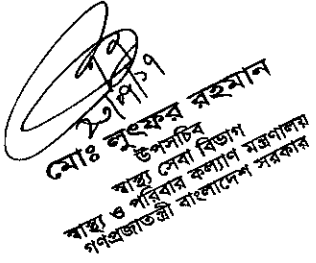 মোঃ লুৎফর রহমান
উপসচিব
স্বাস্থ্য সেবা বিভাগ
স্বাস্থ্য ও পরিবার কল্যাণ মন্ত্রণালয়
গণপ্রজাতন্ত্রী বাংলাদেশ সরকার